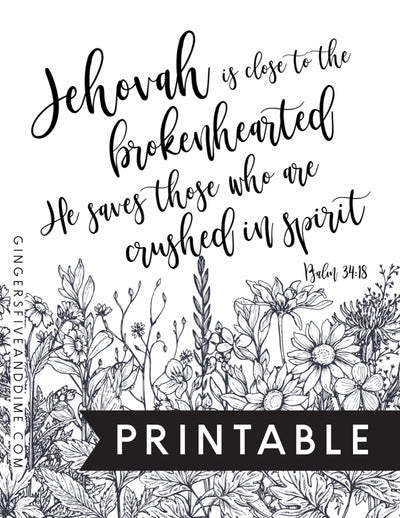 Jehovah is close to the
brokenhearted
He saves those who are
crushed in spirit
Psalm 34:18
GINGERSFIVEANDDIME.COM
PRINTABLE